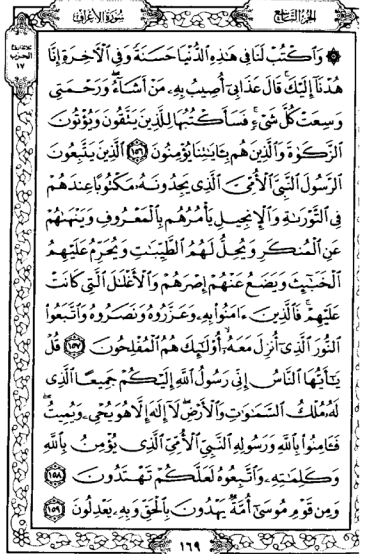 الجزء التاسع
سورة الأعراف
الحزب
١٧
۞ وَٱكۡتُبۡ لَنَا فِي هَٰذِهِ ٱلدُّنۡيَا حَسَنَةٗ وَفِي ٱلۡأٓخِرَةِ إِنَّا
هُدۡنَآ إِلَيۡكَۚ قَالَ عَذَابِيٓ أُصِيبُ بِهِۦ مَنۡ أَشَآءُۖ وَرَحۡمَتِي
وَسِعَتۡ كُلَّ شَيۡءٖۚ فَسَأَكۡتُبُهَا لِلَّذِينَ يَتَّقُونَ وَيُؤۡتُونَ
ٱلزَّكَوٰةَ وَٱلَّذِينَ هُم بِـَٔايَٰتِنَا يُؤۡمِنُونَ ١٥٦ ٱلَّذِينَ يَتَّبِعُونَ
ٱلرَّسُولَ ٱلنَّبِيَّ ٱلۡأُمِّيَّ ٱلَّذِي يَجِدُونَهُۥ مَكۡتُوبًا عِندَهُمۡ
فِي ٱلتَّوۡرَىٰةِ وَٱلۡإِنجِيلِ يَأۡمُرُهُم بِٱلۡمَعۡرُوفِ وَيَنۡهَىٰهُمۡ
عَنِ ٱلۡمُنكَرِ وَيُحِلُّ لَهُمُ ٱلطَّيِّبَٰتِ وَيُحَرِّمُ عَلَيۡهِمُ
ٱلۡخَبَٰٓئِثَ وَيَضَعُ عَنۡهُمۡ إِصۡرَهُمۡ وَٱلۡأَغۡلَٰلَ ٱلَّتِي كَانَتۡ
عَلَيۡهِمۡۚ فَٱلَّذِينَ ءَامَنُواْ بِهِۦ وَعَزَّرُوهُ وَنَصَرُوهُ وَٱتَّبَعُواْ
ٱلنُّورَ ٱلَّذِيٓ أُنزِلَ مَعَهُۥٓ أُوْلَٰٓئِكَ هُمُ ٱلۡمُفۡلِحُونَ ١٥٧ قُلۡ
يَٰٓأَيُّهَا ٱلنَّاسُ إِنِّي رَسُولُ ٱللَّهِ إِلَيۡكُمۡ جَمِيعًا ٱلَّذِي
لَهُۥ مُلۡكُ ٱلسَّمَٰوَٰتِ وَٱلۡأَرۡضِۖ لَآ إِلَٰهَ إِلَّا هُوَ يُحۡيِۦ وَيُمِيتُۖ
فَـَٔامِنُواْ بِٱللَّهِ وَرَسُولِهِ ٱلنَّبِيِّ ٱلۡأُمِّيِّ ٱلَّذِي يُؤۡمِنُ بِٱللَّهِ
وَكَلِمَٰتِهِۦ وَٱتَّبِعُوهُ لَعَلَّكُمۡ تَهۡتَدُونَ ١٥٨
وَمِن قَوۡمِ مُوسَىٰٓ أُمَّةٞ يَهۡدُونَ بِٱلۡحَقِّ وَبِهِۦ يَعۡدِلُونَ ١٥٩
١٦٩